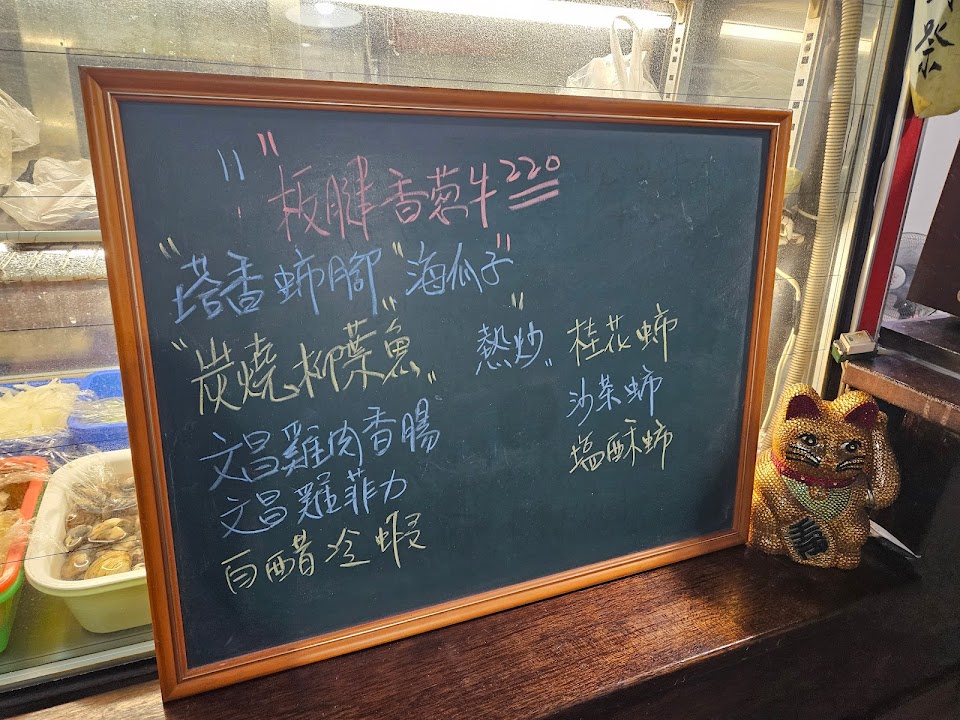 "板腱香蔥牛220
"塔香蚵腳" "海瓜子"
"炭燒柳葉魚" "熱炒" 桂花蚵
沙茶蚵
文昌雞肉香腸
塩酥蚵
文昌雞菲力
百醋冷蝦
祭